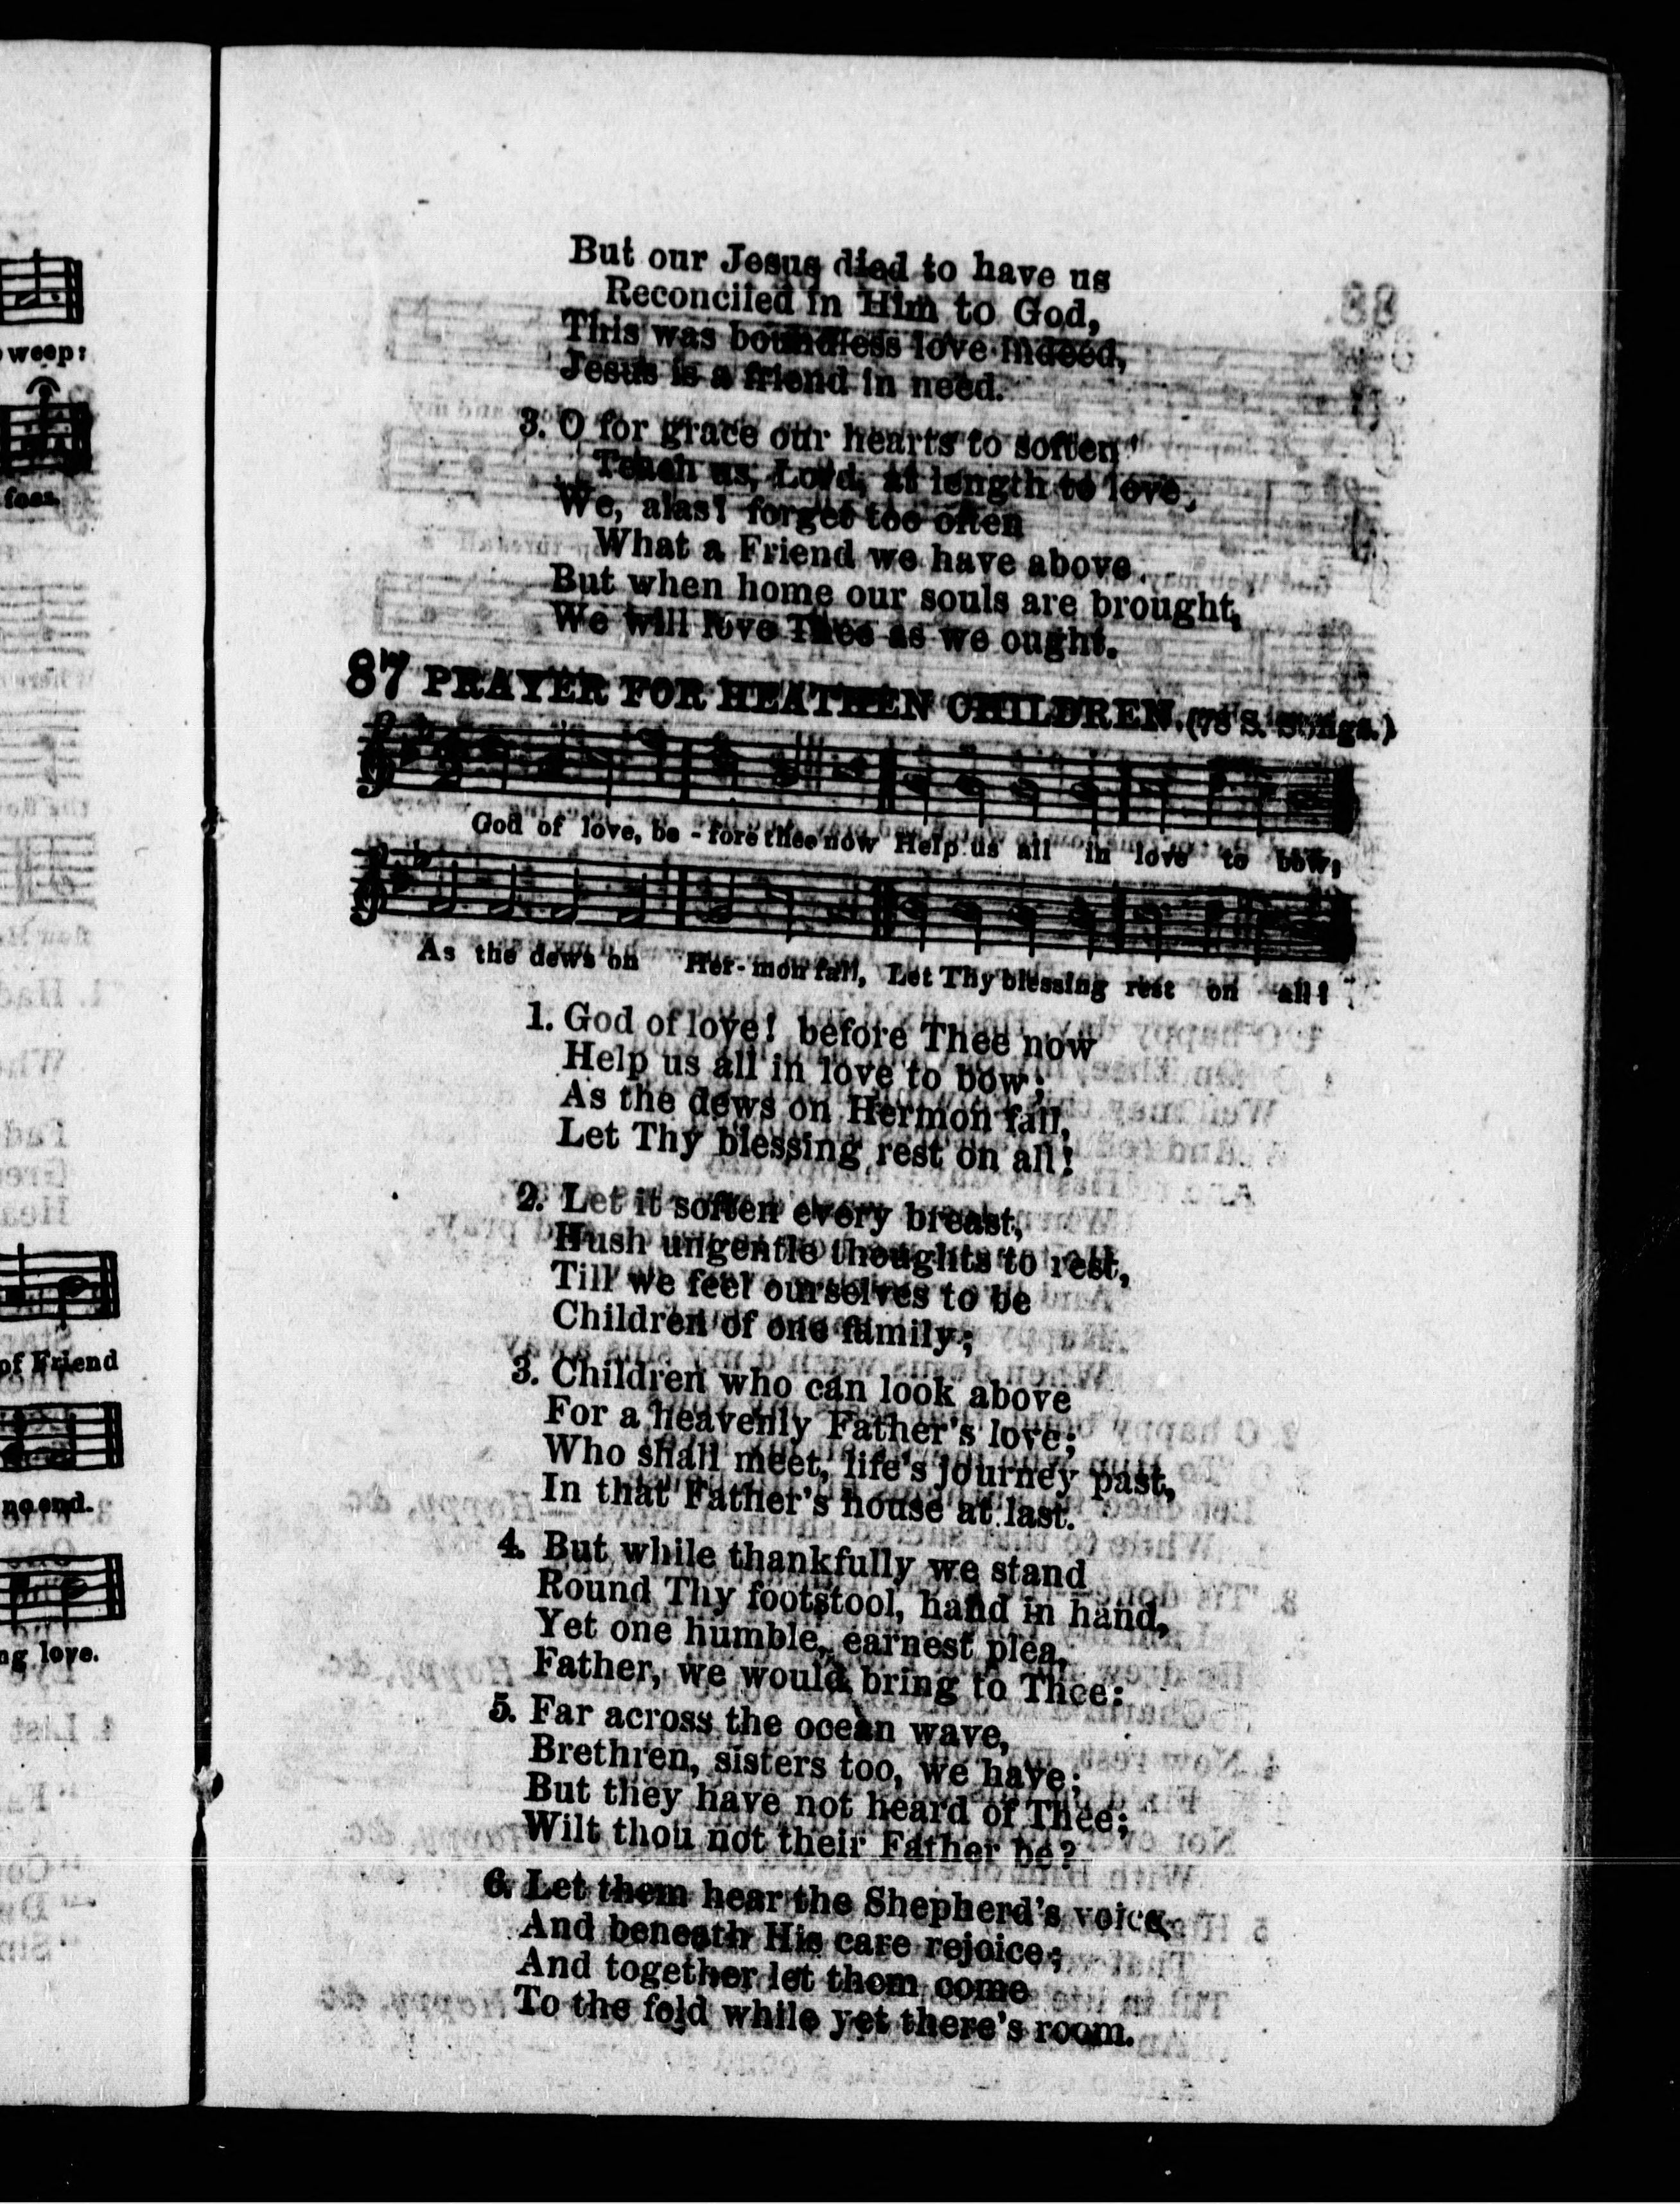 weep:
foes.
of Friend
no end.
ng love.
But our Jesus died to have us
Reconciled in Him to God,
This was boundless love indeed,
Jesus is a friend in need.
3. O for grace our hearts to soften!
Teach us, Lord, at length to love,
We, alas! forget too often
What a Friend we have above.
But when home our souls are brought,
We will love Thee as we ought.
87 PRAYER FOR HEATHEN CHILDREN. (78 S. Songs.)
God of love, be - fore thee now Help us all in love to bow;
As the dews on Her - mon fall, Let Thy blessing rest on all!
1. God of love! before Thee now
Help us all in love to bow;
As the dews on Hermon fall,
Let Thy blessing rest on all!
2. Let it soften every breast,
Hush ungentle thoughts to rest,
Till we feel ourselves to be
Children of one family;
3. Children who can look above
For a heavenly Father's love;
Who shall meet, life's journey past,
In that Father's house at last.
4. But while thankfully we stand
Round Thy footstool, hand in hand,
Yet one humble, earnest plea,
Father, we would bring to Thee:
5. Far across the ocean wave,
Brethren, sisters too, we have;
But they have not heard of Thee;
Wilt thou not their Father be?
6. Let them hear the Shepherd's voice,
And beneath His care rejoice;
And together let them come
To the fold while yet there's room.